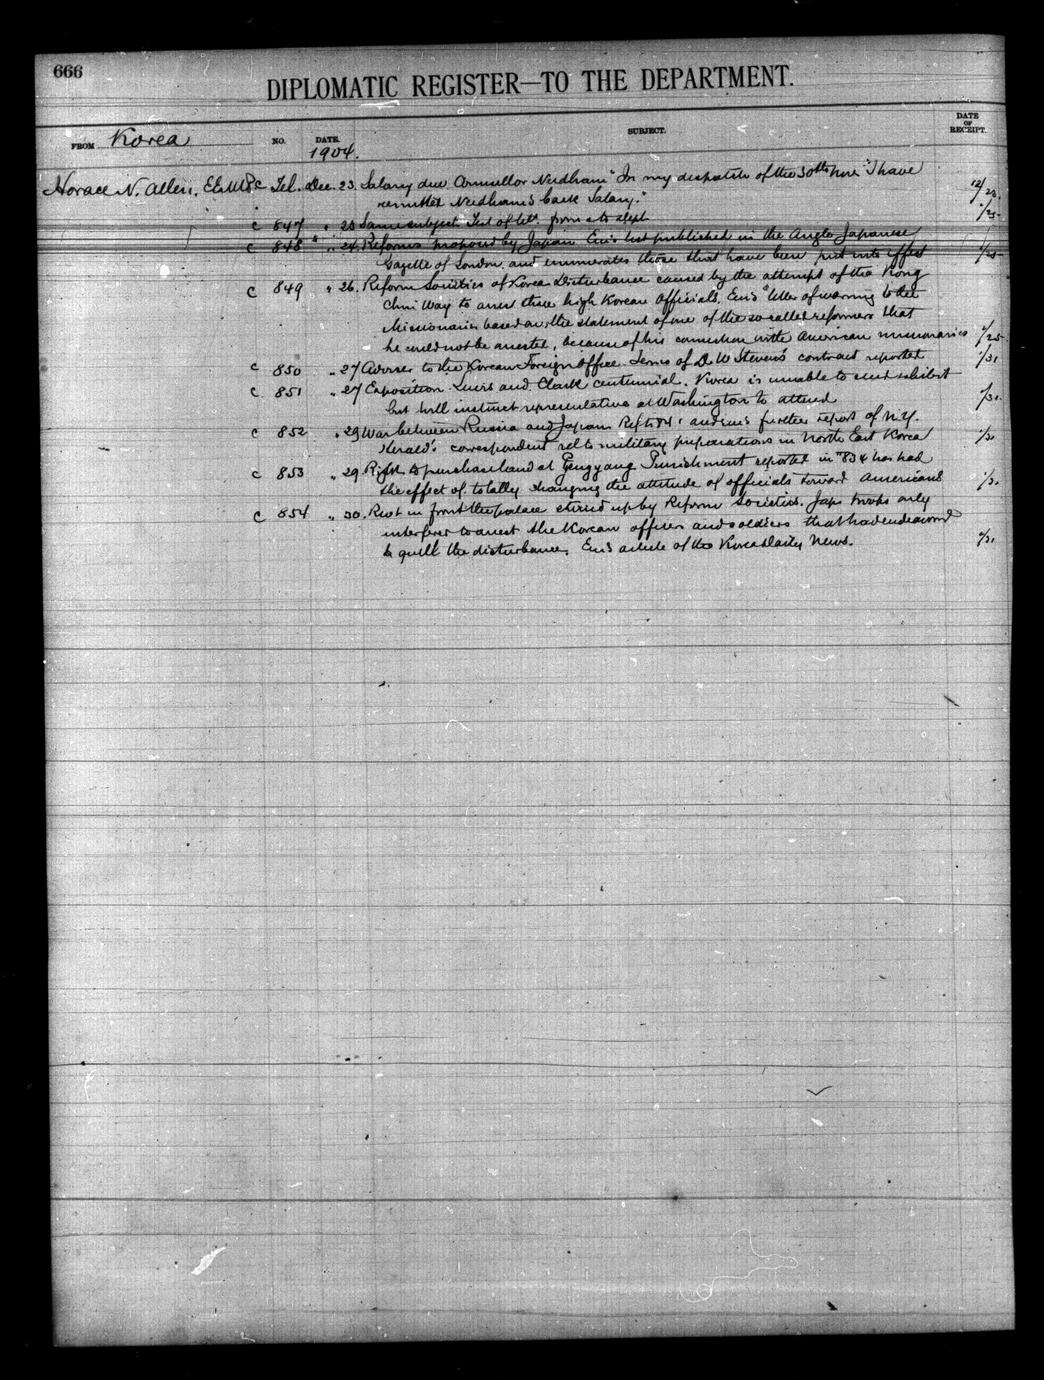 666
DIPLOMATIC REGISTER—TO THE DEPARTMENT.
FROM Korea NO. DATE. SUBJECT. DATE OF RECEIPT.
1904.
Horace N. Allen, E.E.M.P. c Tel. Dec. 23. Salary due Councillor Needham "In my despatch of the 30th Nov. I have 12/23.
remitted Needham's back Salary."
c 847 " 23 Same subject. Text of tel. from & to dept. 1/25
c 848 " 24. Reforms proposed by Japan. Encs list published in the Anglo Japanese
Gazette of London, and enumerates those that have been put into effect 1/25
c 849 " 26. Reform Societies of Korea Disturbance caused by the attempt of the Kong
Chin Way to arrest three high Korean Officials. Encs letter of warning to the
Missionaries based on the statement of one of the so called reformers that
he could not be arrested, because of his connection with American missionaries 1/25
c 850 " 27 Adviser to the Korean Foreign Office. Terms of D. W. Stevens' contract reported 1/31
c 851 " 27 Exposition. Lewis and Clark centennial. Korea is unable to send exhibit
but will instruct representative at Washington to attend 1/31.
c 852 " 29 War between Russia and Japan. Ref to and encs further report of N.Y.
Herald's correspondent rel to military preparations in North East Korea 1/31
c 853 " 29. Right to purchase land at Punishment reported in 834 has had
the effect of totally changing the attitude of officials toward Americans 1/31.
c 854 " 30. Riot in front the palace stirred up by Reform Societies. Jap. troops only
interferer to arrest the Korean officers and soldiers that had endeavored
to quell the disturbance. Encs article of the Korea Daily News. 1/31.